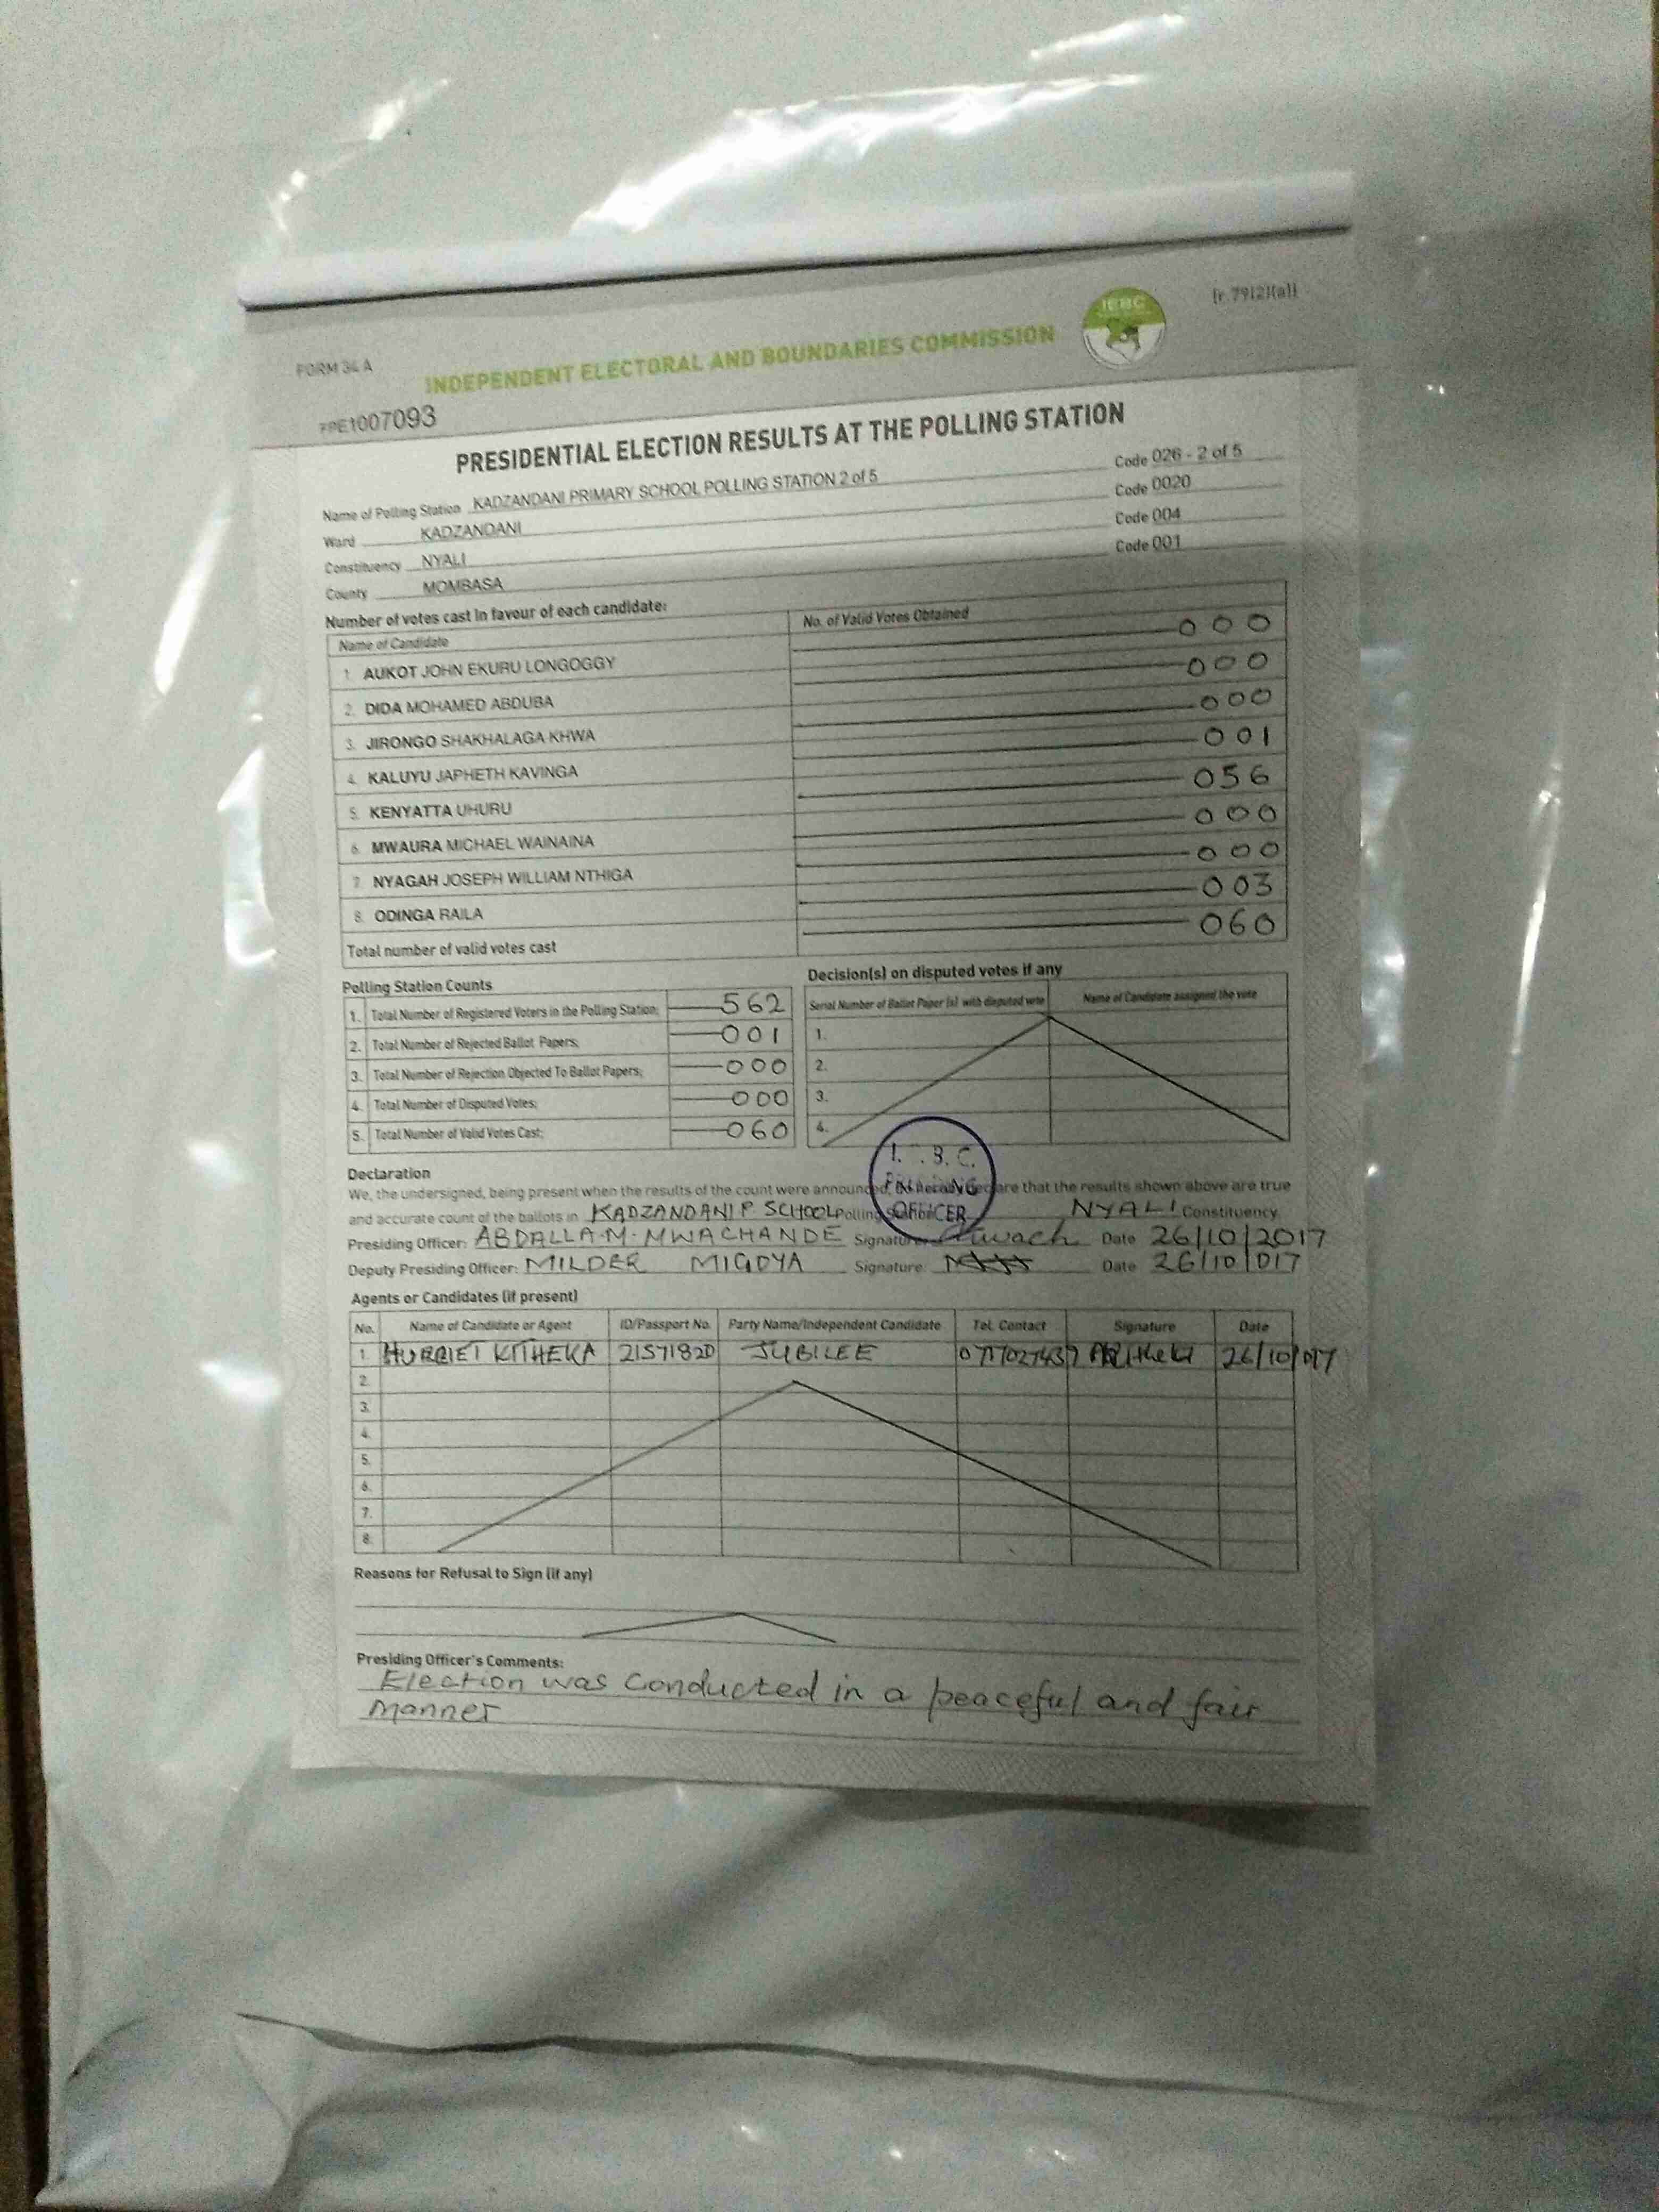 [r.79(2)(a)]
IEBC
FORM 34A
INDEPENDENT ELECTORAL AND BOUNDARIES COMMISSION
PPE1007093
PRESIDENTIAL ELECTION RESULTS AT THE POLLING STATION
Name of Polling Station KADZANDANI PRIMARY SCHOOL POLLING STATION 2 of 5 Code 026 - 2 of 5
Ward KADZANDANI Code 0020
Constituency NYALI Code 004
County MOMBASA Code 001
Number of votes cast in favour of each candidate:
Name of Candidate No. of Valid Votes Obtained
1. AUKOT JOHN EKURU LONGOGGY 000
2. DIDA MOHAMED ABDUBA 000
3. JIRONGO SHAKHALAGA KHWA 000
4. KALUYU JAPHETH KAVINGA 001
5. KENYATTA UHURU 056
6. MWAURA MICHAEL WAINAINA 000
7. NYAGAH JOSEPH WILLIAM NTHIGA 000
8. ODINGA RAILA 003
Total number of valid votes cast 060
Polling Station Counts
1. Total Number of Registered Voters in the Polling Station; 562
2. Total Number of Rejected Ballot Papers; 001
3. Total Number of Rejection Objected To Ballot Papers; 000
4. Total Number of Disputed Votes; 000
5. Total Number of Valid Votes Cast; 060
Decision(s) on disputed votes if any
Serial Number of Ballot Paper (s) with disputed vote Name of Candidate assigned the vote
1.
2.
3.
4.
I. B. C.
OFFICER
Declaration
We, the undersigned, being present when the results of the count were announced, do hereby declare that the results shown above are true
and accurate count of the ballots in KADZANDANI P SCHOOL Polling Station NYALI Constituency
Presiding Officer: ABDALLA.M.MWACHANDE Signature: Date 26/10/2017
Deputy Presiding Officer: MILDER MIGOYA Signature Date 26/10/017
Agents or Candidates (if present)
No. Name of Candidate or Agent ID/Passport No. Party Name/Independent Candidate Tel. Contact Signature Date
1. KITHEKA 21571820 JUBILEE 0717027437 26/10/017
2.
3.
4.
5.
6.
7.
8.
Reasons for Refusal to Sign (if any)
Presiding Officer's Comments:
Election was conducted in a peaceful and fair
manner